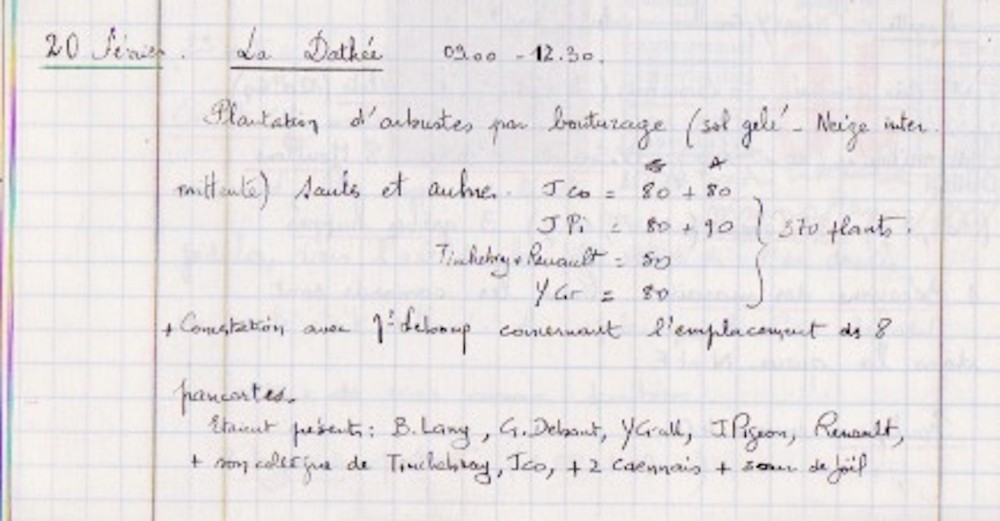 20 Février. La Dathée 09.00 - 12.30.
Plantation d'arbustes par bouturage (sol gelé - Neige inter
mittente) saules et aulne. J Co = 80 + 80
J Pi = 80 + 90 } 370 plants.
Tinchebray + Renault =
Y Gr = 80
+ avec concernant l'emplacement de 8
pancartes.
Etaient présents: B. Lang, G. Debout, Y Grall, J Pigeon, Renault,
+ son collègue de Tinchebray, J Co, + 2 caennais + soeur de Joël